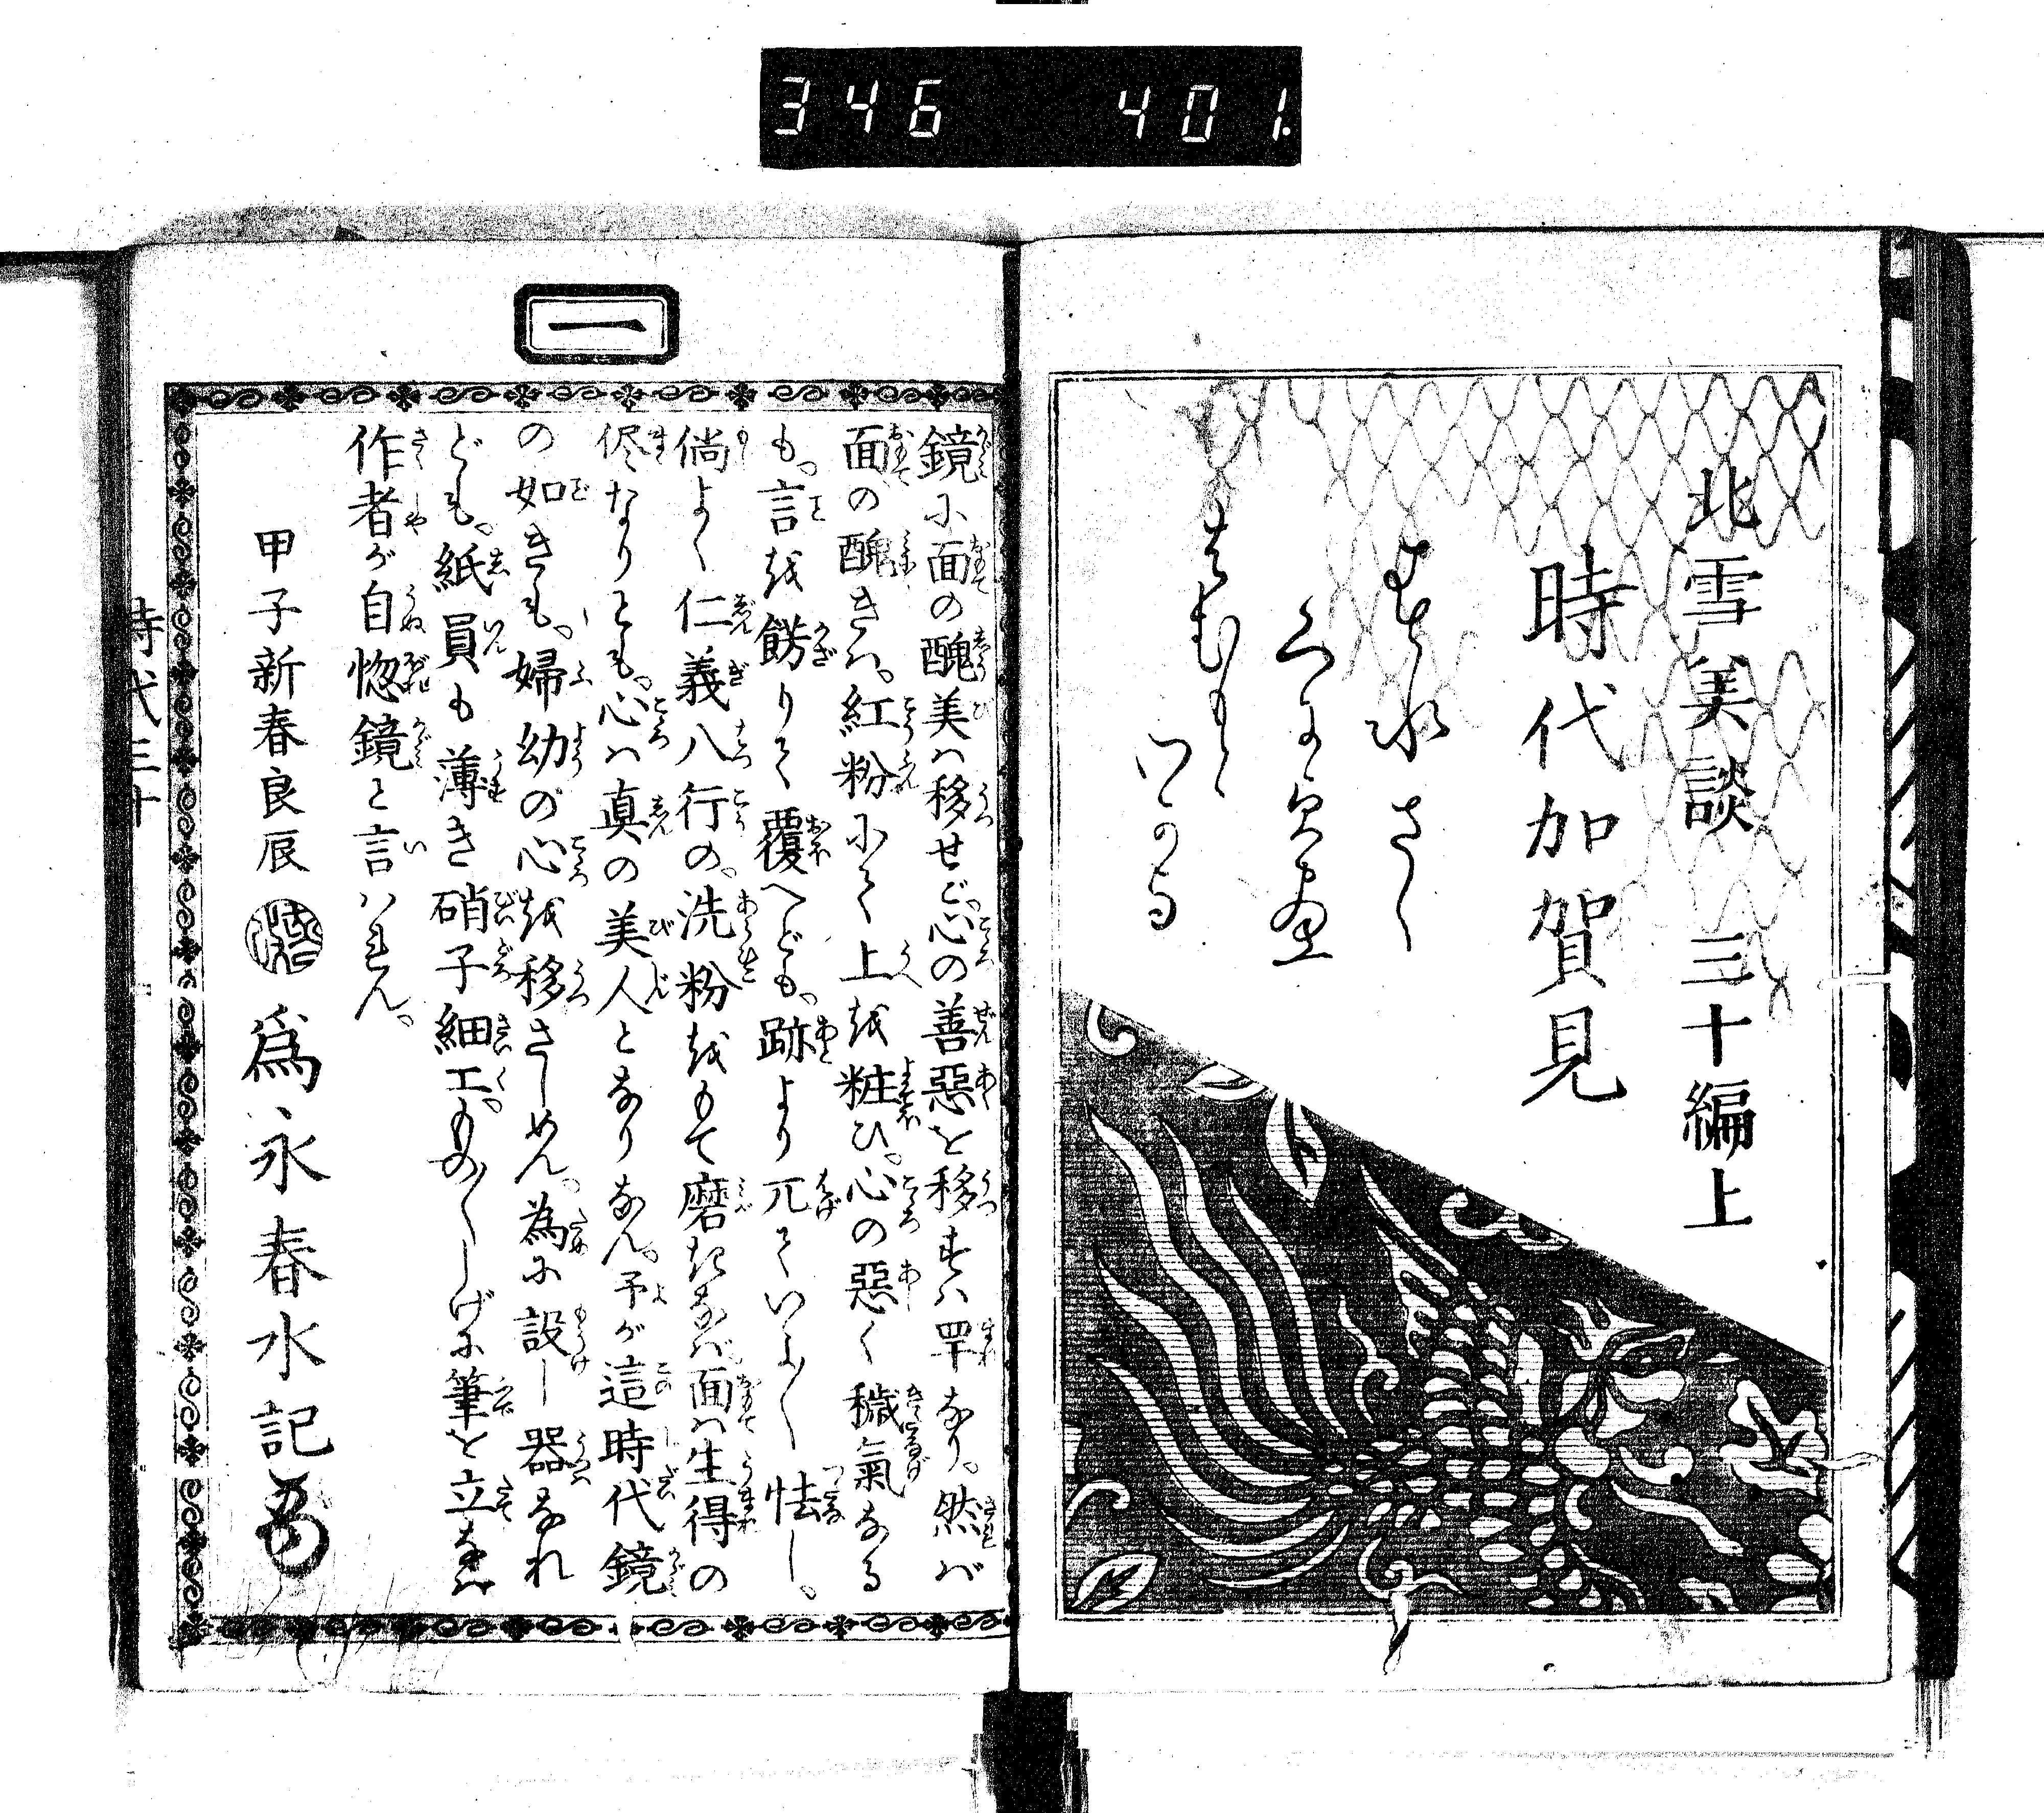 346 401.
北雪美談 三十編上
時代加賀見
春水さく
くに貞画
一
鏡に面の醜美は移せど心の善悪を移すは罕なり。然ば
面の醜きは。紅粉にて上を粧ひ。心の悪く穢氣なる
も。言を餝りて覆へども。跡より兀ていよ〱怯し。
倘よく仁義八行の。洗粉をもて磨きなば面は生得の
侭なりとも。心は真の美人となりなん。予が這時代鏡
の如きも。婦幼の心を移さしめん。為に設し器なれ
ども。紙員も薄き硝子細工。もの〱しげに筆を立なば
作者が自惚鏡と言はれん。
甲子新春良辰
為永春水記
時代三十